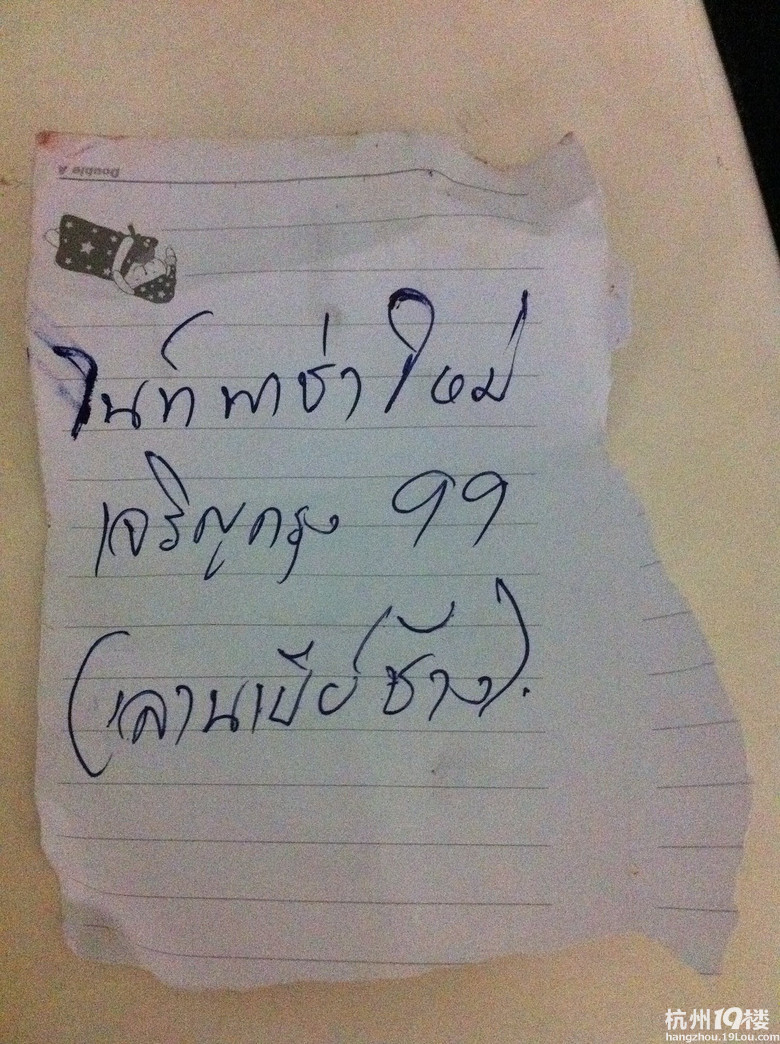 Double A
ไนท์พาซ่าใหม่
เจริญกรุง 99
(ลานเบียร์ช้าง).
杭州19楼
hangzhou.19Lou.com